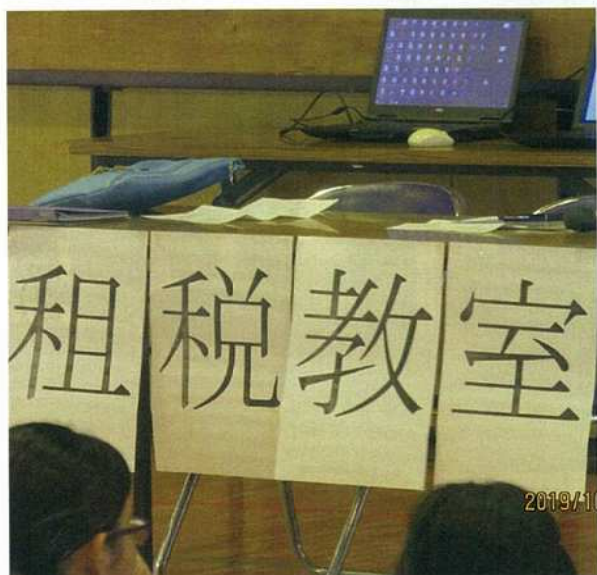 租税教室
2019/10